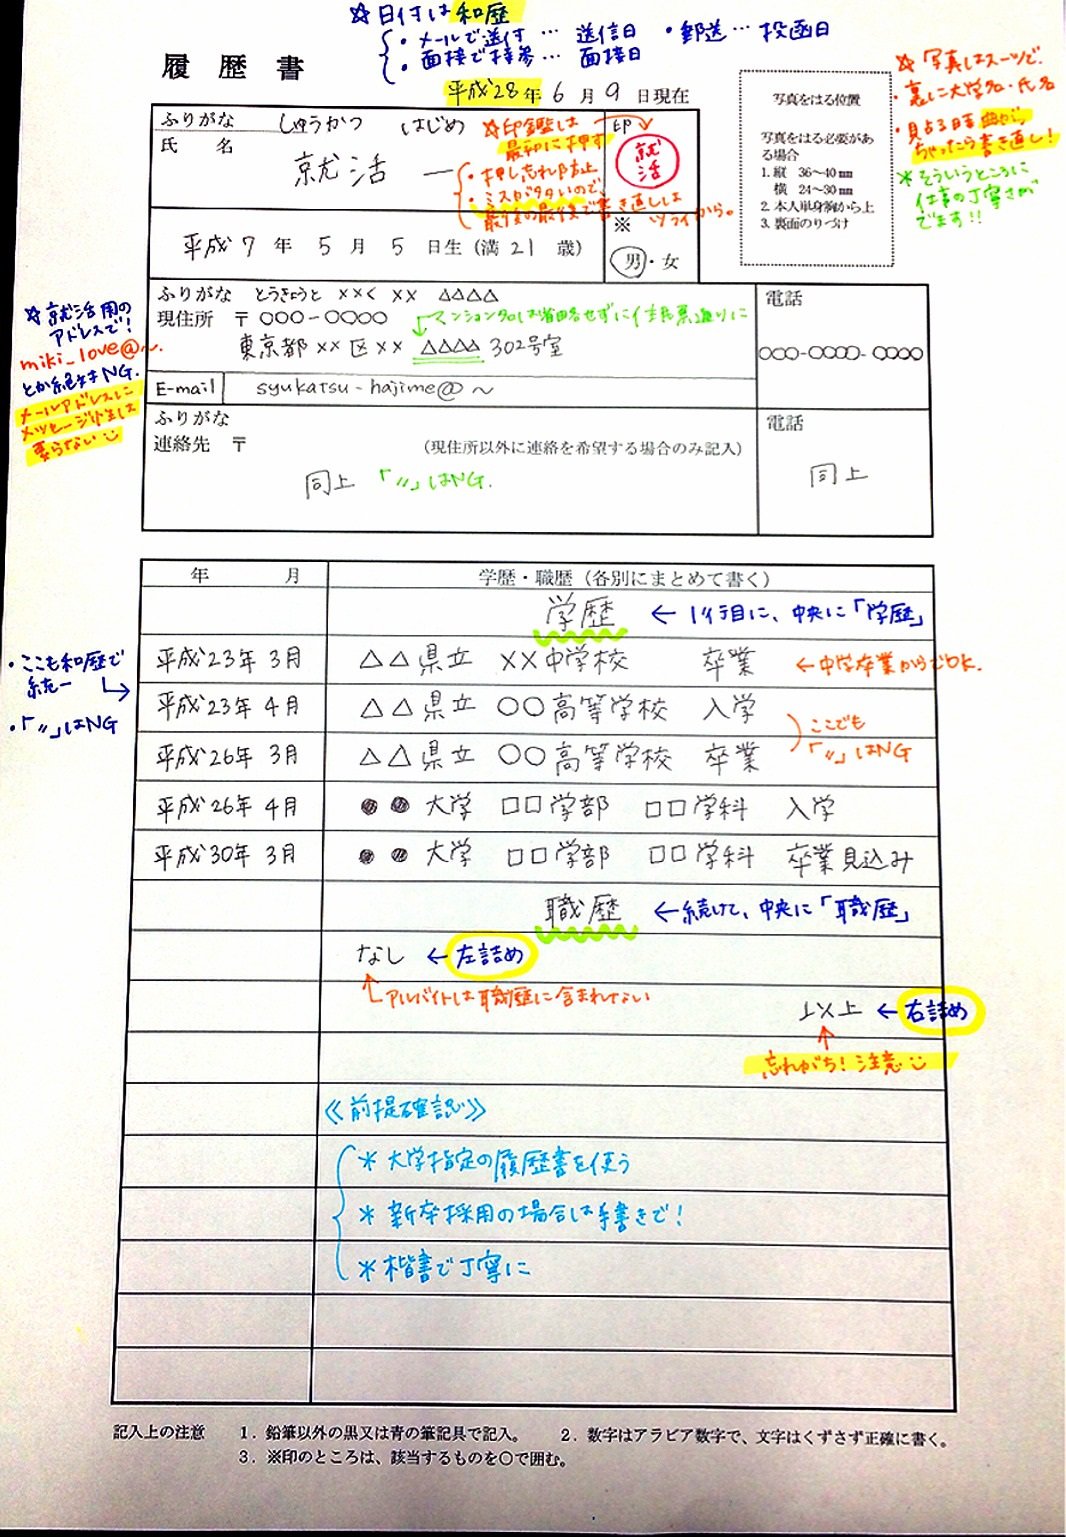 ☆日付は和暦
・メールで送付 … 送信日 ・郵送 … 投函日
・面接で持参 … 面接日
履歴書
平成28年 6月 9日現在
☆写真はスーツで。
・裏に大学名・氏名
・貼る時曲がっ
ちゃったら書き直し!
＊そういうところに
仕事の丁寧さが
でます!!
写真をはる位置
写真をはる必要があ
る場合
1. 縦 36〜40mm
横 24〜30mm
2. 本人単身胸から上
3. 裏面のりづけ
ふりがな しゅうかつ はじめ
氏名 就活 一
☆印鑑は
最初に押す
・押し忘れ防止
・ミスが多いので、
最後の最後で書き直しは
ツライから。
印
就活
平成7年 5月 5日生 (満21歳)
※
男・女
ふりがな とうきょうと ××く ×× △△△△
現住所 〒 ○○○-○○○○
マンション名は省略せずに住民票通りに
東京都××区×× △△△△ 302号室
電話
○○○-○○○○-○○○○
E-mail syukatsu-hajime@〜
☆就活用の
アドレスで!
miki_love@〜
とか絶対NG.
メールアドレスに
メッセージ性は
要らない
ふりがな
連絡先 〒 (現住所以外に連絡を希望する場合のみ記入)
同上 「〃」はNG.
電話
同上
年 月 学歴・職歴 (各別にまとめて書く)
学歴 ← 1行目に、中央に「学歴」
平成23年 3月 △△県立 ××中学校 卒業 ←中学卒業からでOK.
・ここも和暦で
統一
・「〃」はNG
平成23年 4月 △△県立 ○○高等学校 入学
平成26年 3月 △△県立 ○○高等学校 卒業
ここでも
「〃」はNG
平成26年 4月 ●●大学 □□学部 □□学科 入学
平成30年 3月 ●●大学 □□学部 □□学科 卒業見込み
職歴 ←続けて、中央に「職歴」
なし ←左詰め
↑アルバイトは職歴に含まれない
以上 ←右詰め
↑
忘れがち! 注意
《前提確認》
＊大学指定の履歴書を使う
＊新卒採用の場合は手書きで!
＊楷書で丁寧に
記入上の注意 1. 鉛筆以外の黒又は青の筆記具で記入。 2. 数字はアラビア数字で、文字はくずさず正確に書く。
3. ※印のところは、該当するものを○で囲む。